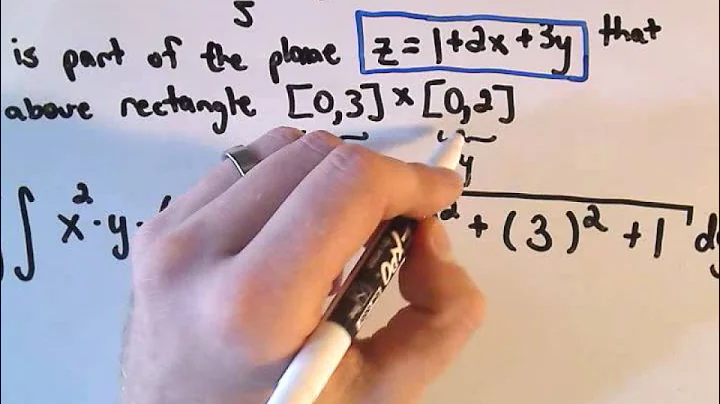 S
is part of the plane z = 1+2x+3y that
above rectangle [0,3] × [0,2]
y
∫ x² · y · ² + (3)² + 1 dy
EXPO